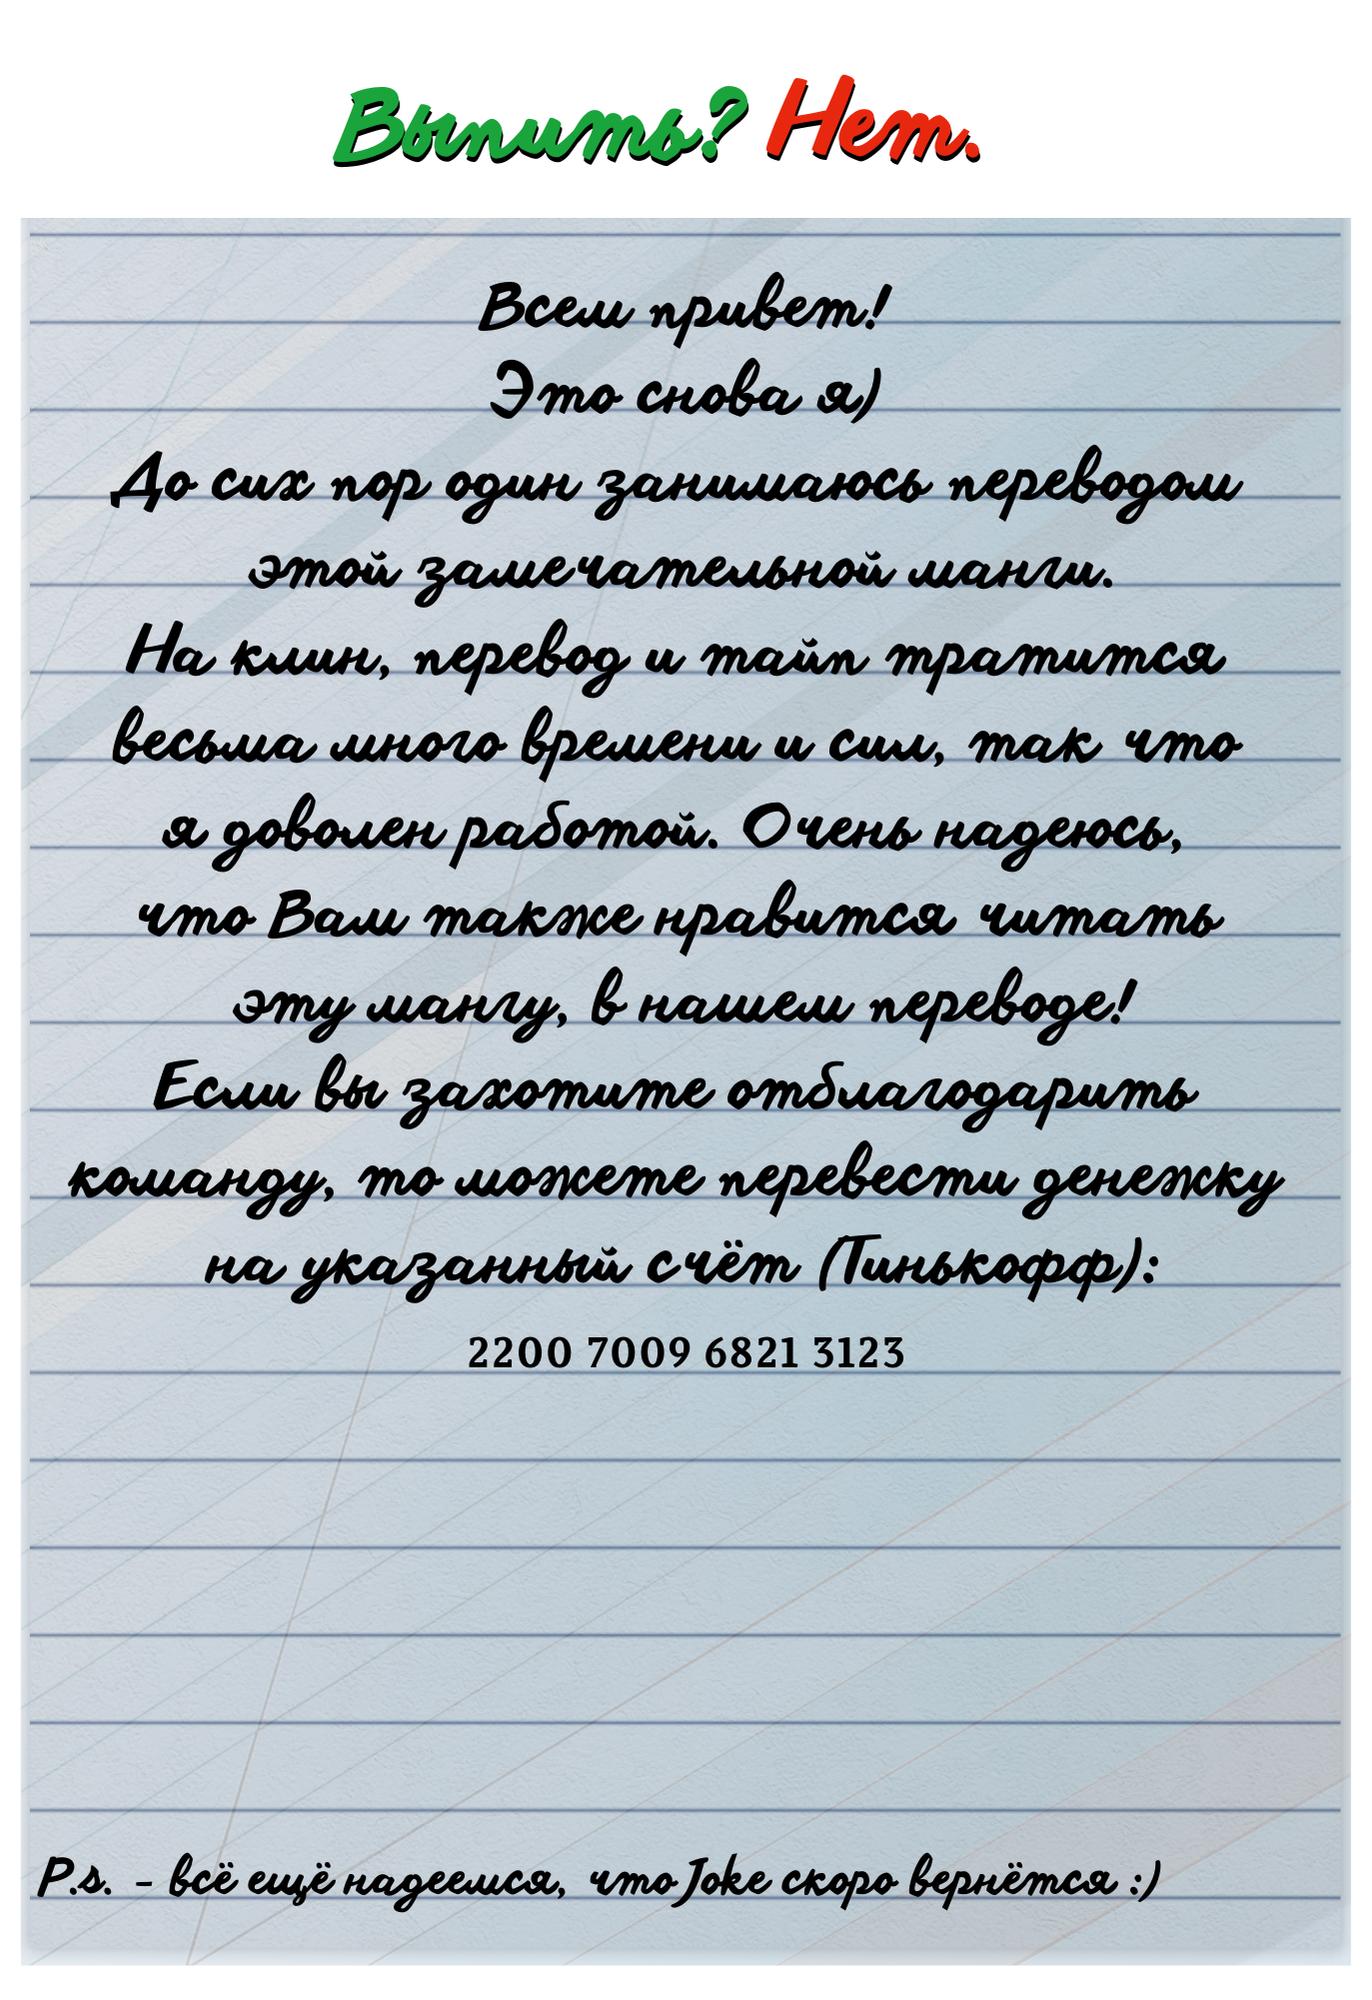 Выпить? Нет.
Всем привет!
Это снова я)
До сих пор один занимаюсь переводом
этой замечательной манги.
На клин, перевод и тайп тратится
весьма много времени и сил, так что
я доволен работой. Очень надеюсь,
что Вам также нравится читать
эту мангу, в нашем переводе!
Если вы захотите отблагодарить
команду, то можете перевести денежку
на указанный счёт (Тинькофф):
2200 7009 6821 3123
P.s. - всё ещё надеемся, что Joke скоро вернётся :)